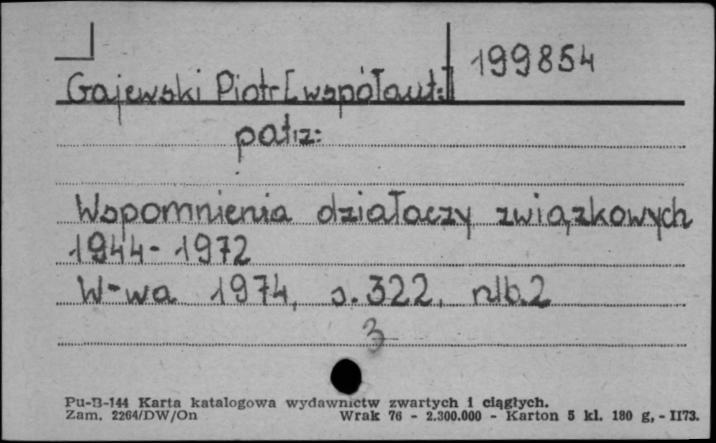 199854
Gajewski Piotr [współaut.]
patrz:
Wspomnienia działaczy związkowych
1944-1972
W-wa 1974, s. 322, nlb. 2
3
Pu-B-144 Karta katalogowa wydawnictw zwartych i ciągłych.
Zam. 2264/DW/On Wrak 76 - 2.300.000 - Karton 5 kl. 180 g, - II73.